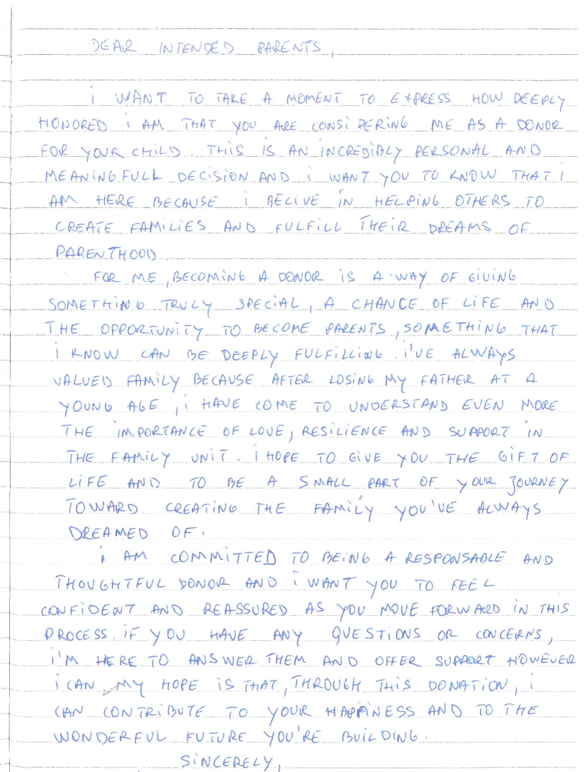 DEAR INTENDED PARENTS,
i WANT TO TAKE A MOMENT TO EXPRESS HOW DEEPLY
HONORED i AM THAT YOU ARE CONSIDERING ME AS A DONOR
FOR YOUR CHILD. THIS IS AN INCREDIBLY PERSONAL AND
MEANINGFULL DECISION AND i WANT YOU TO KNOW THAT I
AM HERE BECAUSE i BELIVE IN HELPING OTHERS TO
CREATE FAMILIES AND FULFILL THEIR DREAMS OF
PARENTHOOD.
FOR ME, BECOMING A DONOR IS A WAY OF GIVING
SOMETHING TRULY SPECIAL, A CHANCE OF LIFE AND
THE OPPORTUNITY TO BECOME PARENTS, SOMETHING THAT
i KNOW CAN BE DEEPLY FULFILLING. i'VE ALWAYS
VALUED FAMILY BECAUSE AFTER LOSING MY FATHER AT A
YOUNG AGE, i HAVE COME TO UNDERSTAND EVEN MORE
THE IMPORTANCE OF LOVE, RESILIENCE AND SUPPORT IN
THE FAMILY UNIT. i HOPE TO GIVE YOU THE GIFT OF
LIFE AND TO BE A SMALL PART OF YOUR JOURNEY
TOWARD CREATING THE FAMILY YOU'VE ALWAYS
DREAMED OF.
i AM COMMITTED TO BEING A RESPONSABLE AND
THOUGHTFUL DONOR AND i WANT YOU TO FEEL
CONFIDENT AND REASSURED AS YOU MOVE FORWARD IN THIS
PROCESS. IF YOU HAVE ANY QUESTIONS OR CONCERNS,
i'M HERE TO ANSWER THEM AND OFFER SUPPORT HOWEVER
i CAN. MY HOPE IS THAT, THROUGH THIS DONATION, i
CAN CONTRIBUTE TO YOUR HAPPINESS AND TO THE
WONDERFUL FUTURE YOU'RE BUILDING.
SINCERELY,